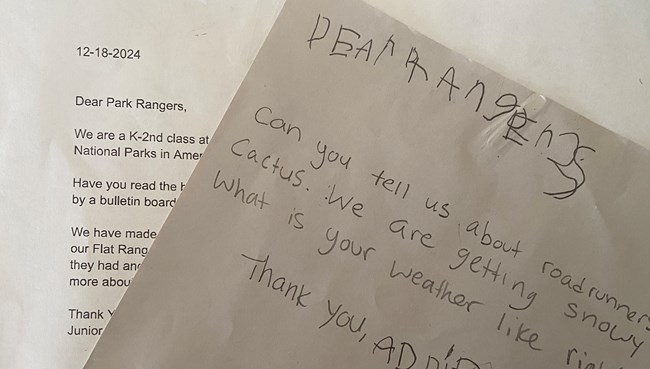 12-18-2024
Dear Park Rangers,
We are a K-2nd class at
National Parks in Amer
Have you read the
by a bulletin board
We have made
our Flat Rang
they had and
more abou
Thank
Junior
DEAR RANGERS
Can you tell us about roadrunners
Cactus. We are getting snowy
What is your weather like
Thank you,